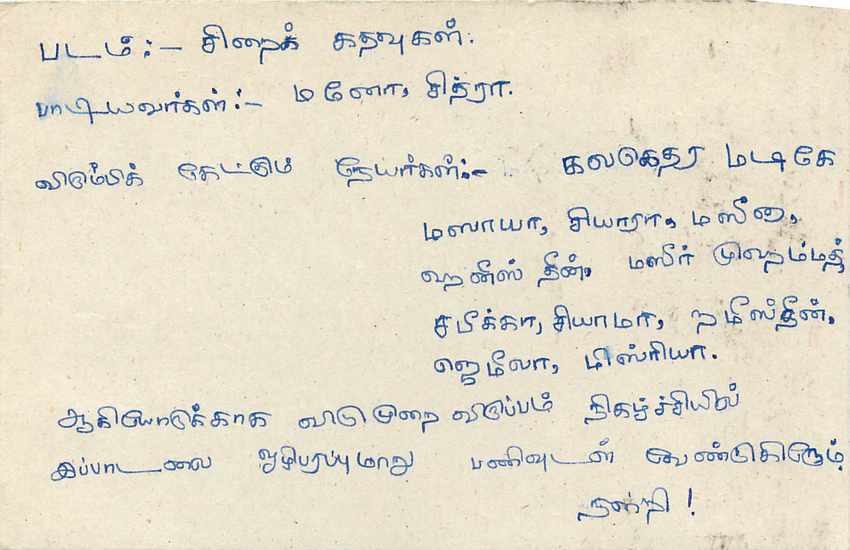 படம்:- சிறைக் கதவுகள்.
பாடியவர்கள்:- மனோ, சித்ரா.
விரும்பிக் கேட்கும் நேயர்கள்:- கலகெதர மடிகே
மஸாயா, சியாரா, மஸீனா,
ஹனீஸ் தீன், மஸீர் முஹம்மத்
சபீக்கா, சியாமா, நமீஸ்தீன்,
ஜெமீலா, மிஸ்ரியா.
ஆகியோருக்காக விடுமுறை விருப்பம் நிகழ்ச்சியில்
இப்பாடலை ஒழிபரப்புமாறு பணிவுடன் வேண்டுகிறோம்
நன்றி !